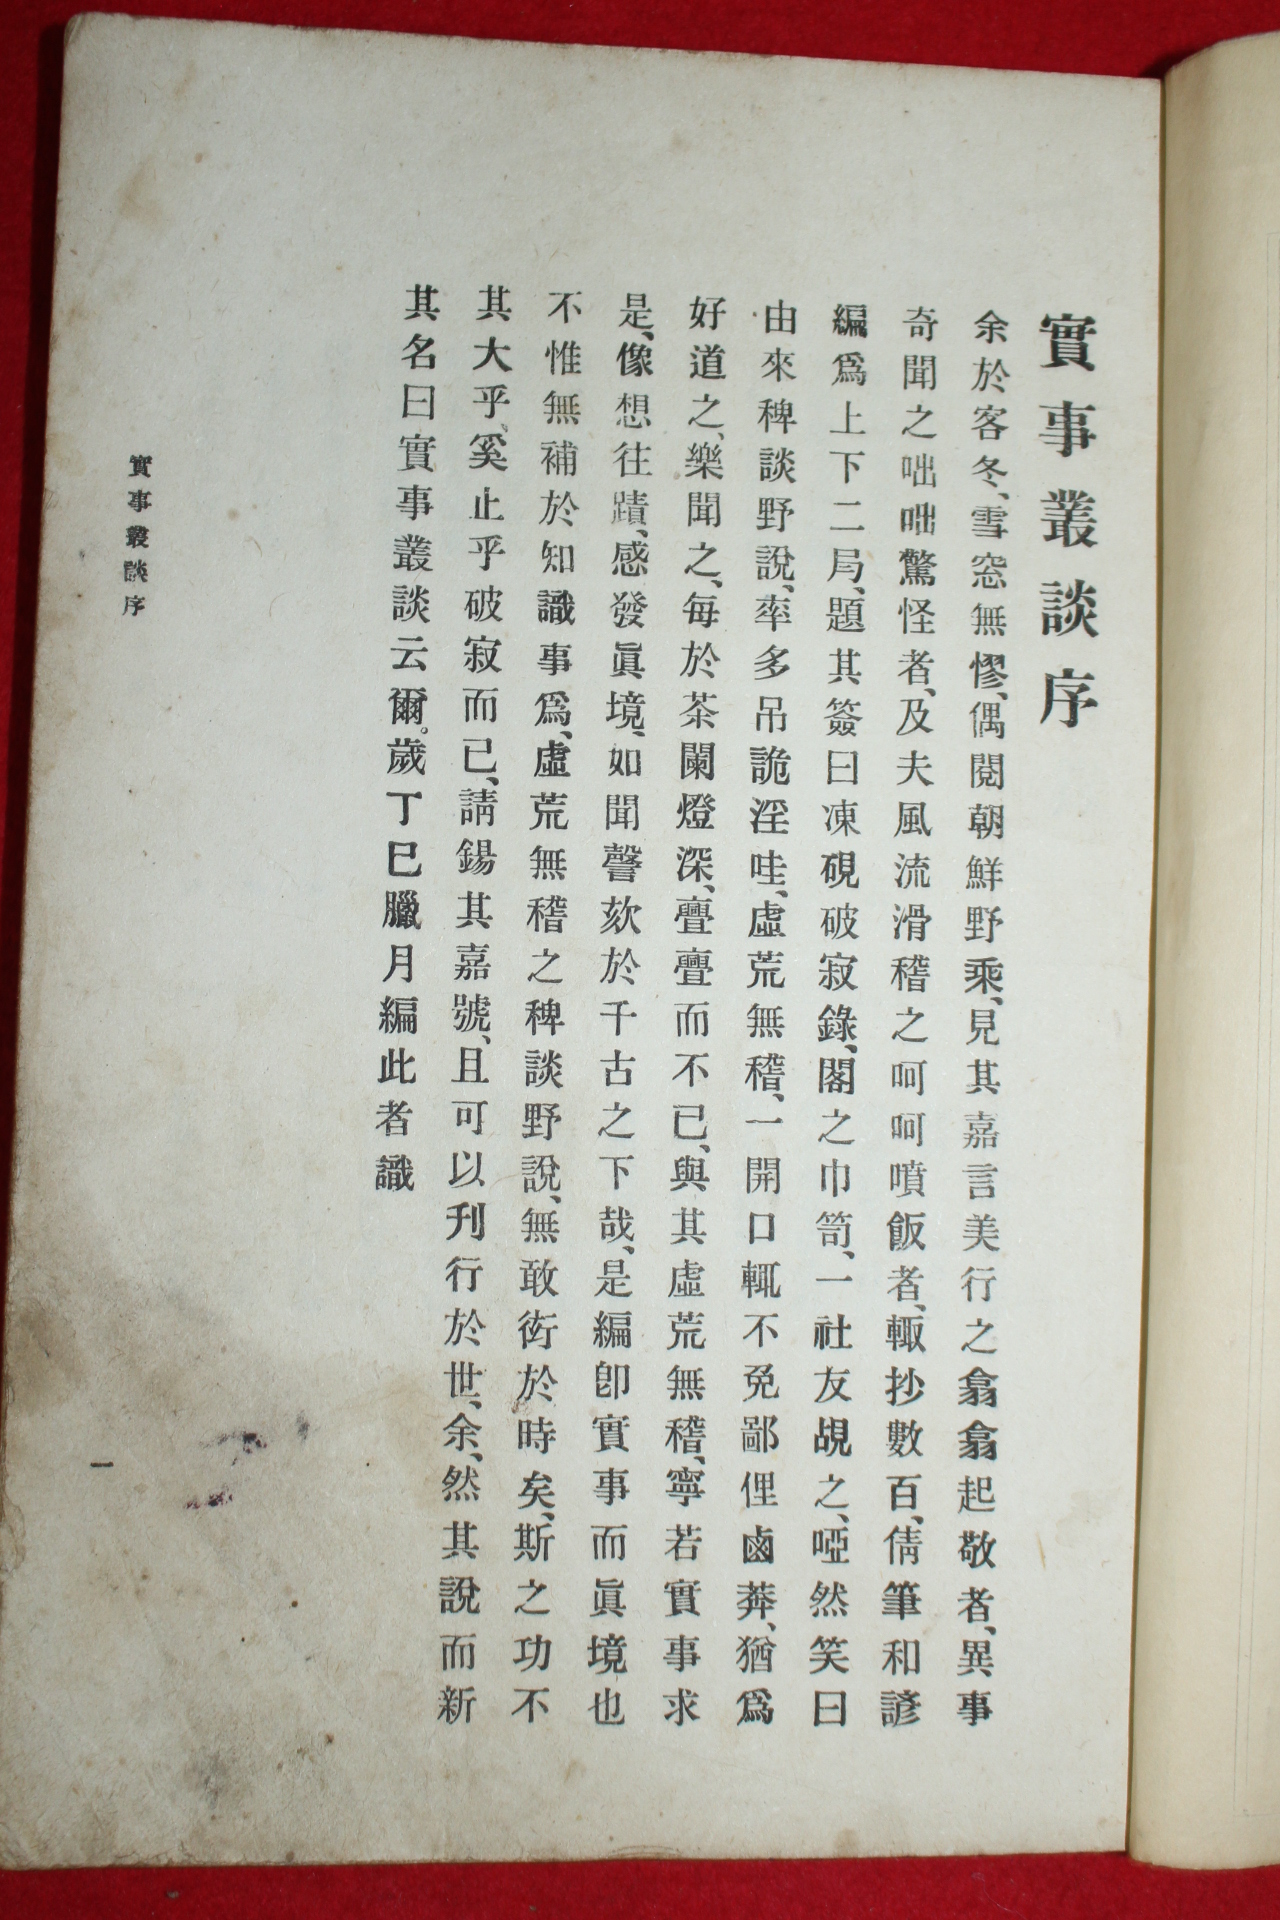 實事叢談序
余於客冬、雪窓無憀、偶閱朝鮮野乘、見其嘉言美行之翕翕起敬者、異事
奇聞之咄咄驚怪者、及夫風流滑稽之呵呵噴飯者、輙抄數百、倩筆和諺
編爲上下二局、題其簽曰凍硯破寂錄、閣之巾笥、一社友覘之、啞然笑曰
由來稗談野說、率多吊詭淫哇、虛荒無稽、一開口輒不免鄙俚鹵莽、猶爲
好道之、樂聞之、每於茶闌燈深、亹亹而不已、與其虛荒無稽、寧若實事求
是、像想往蹟、感發眞境、如聞謦欬於千古之下哉、是編卽實事而眞境也
不惟無補於知識事爲、虛荒無稽之稗談野說、無敢衒於時矣、斯之功不
其大乎、奚止乎破寂而已、請錫其嘉號、且可以刊行於世、余、然其說而新
其名曰實事叢談云爾。歲丁巳臘月編此者識
實事叢談序
一